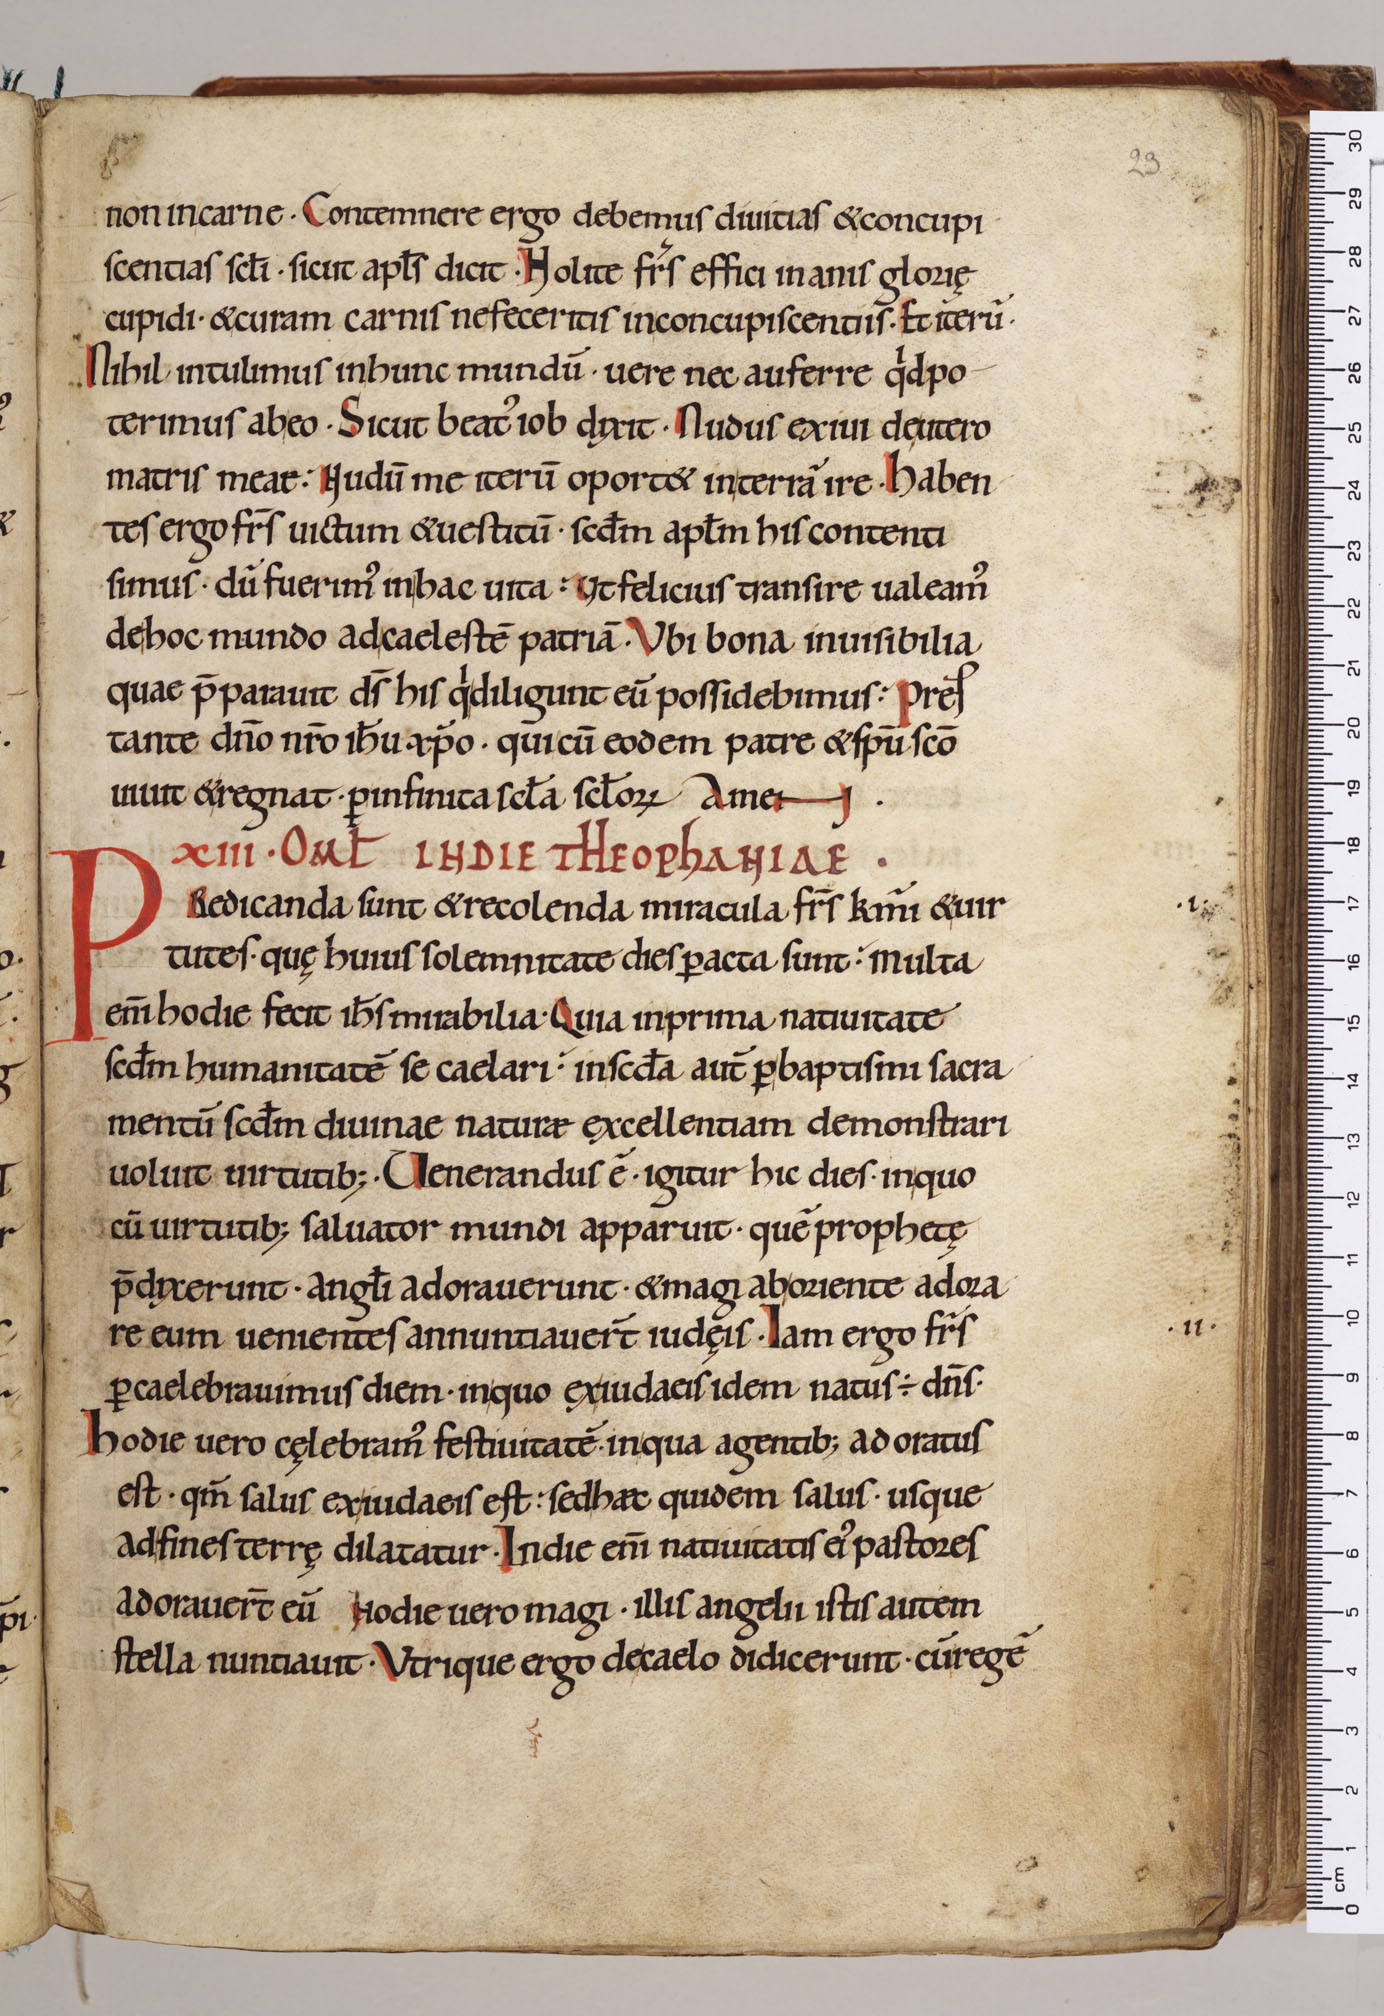 23
non incarne · Contemnere ergo debemus diuitias &concupi
scentias scl̄i · sicut apl̄s dicit · Nolite fr̄s effici inanis glorię
cupidi · &curam carnis nefeceritis inconcupiscentiis · Et iterū ·
Nihil intulimus inhunc mundū · uere nec auferre qͥd po
terimus abeo · Sicut beatꝰ iob dixit · Nudus exiui deutero
matris meae : Nudū me iterū oport& interrā ire · haben
tes ergo fr̄s uictum &uestitū · scd̄m apl̄m his contenti
simus · dū fuerimꝰ inhac uita : Ut felicius transire ualeamꝰ
dehoc mundo adcaelestē patriā · Vbi bona inuisibilia
quae p̄parauit ds̄ his qͥ diligunt eū possidebimus : Pres
tante dn̄o nr̄o ih̄u xp̄o · qui cū eodem patre &sp̄u sc̄o
uiuit &regnat · ꝑinfinita scl̄a scl̄oꝝ Amen ·
XIII · OML̄ INDIE THEOPHANIAE ·
PRedicanda sunt &recolenda miracula fr̄s km̄i &uir
· i ·
tutes · quę huius solemnitate dies ꝑacta sunt : Multa
eni̅ hodie fecit ih̄s mirabilia · Quia inprima natiuitate
scd̄m humanitatē se caelari : inscd̄a aut̄ ꝑbaptismi sacra
mentū scd̄m diuinae naturæ excellentiam demonstrari
uoluit uirtutib; · Uenerandus ē · igitur hic dies · inquo
cū uirtutib; saluator mundi apparuit · quē prophetę
p̄dixerunt · angl̄i adorauerunt · &magi aboriente adora
re eum uenientes annuntiauer̄t iudęis · Iam ergo fr̄s
· ii ·
ꝑcaelebrauimus diem · inquo exiudaeis idem natus ÷ dn̄s ·
hodie uero cęlebramꝰ festiuitatē · inqua agentib; adoratus
est · qm̄ salus exiudaeis est : sedhæc quidem salus · usque
adfines terrę dilatatur · Indie eni̅ natiuitatis eiꝰ pastores
adorauer̄t eū Hodie uero magi · illis angelii istis autem
stella nuntiauit · Vtrique ergo decaelo didicerunt · cū regē